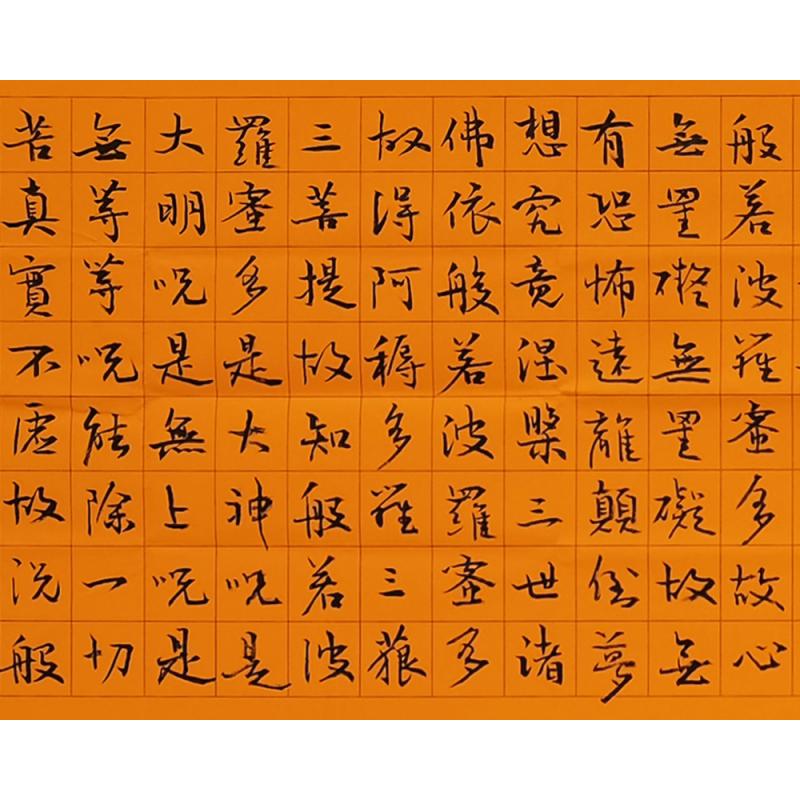 般若波羅蜜多故心
無罣礙無罣礙故無
有恐怖遠離顛倒夢
想究竟涅槃三世諸
佛依般若波羅蜜多
故得阿耨多羅三藐
三菩提故知般若波
羅蜜多是大神呪是
大明呪是無上呪是
無等等呪能除一切
苦真實不虛故說般